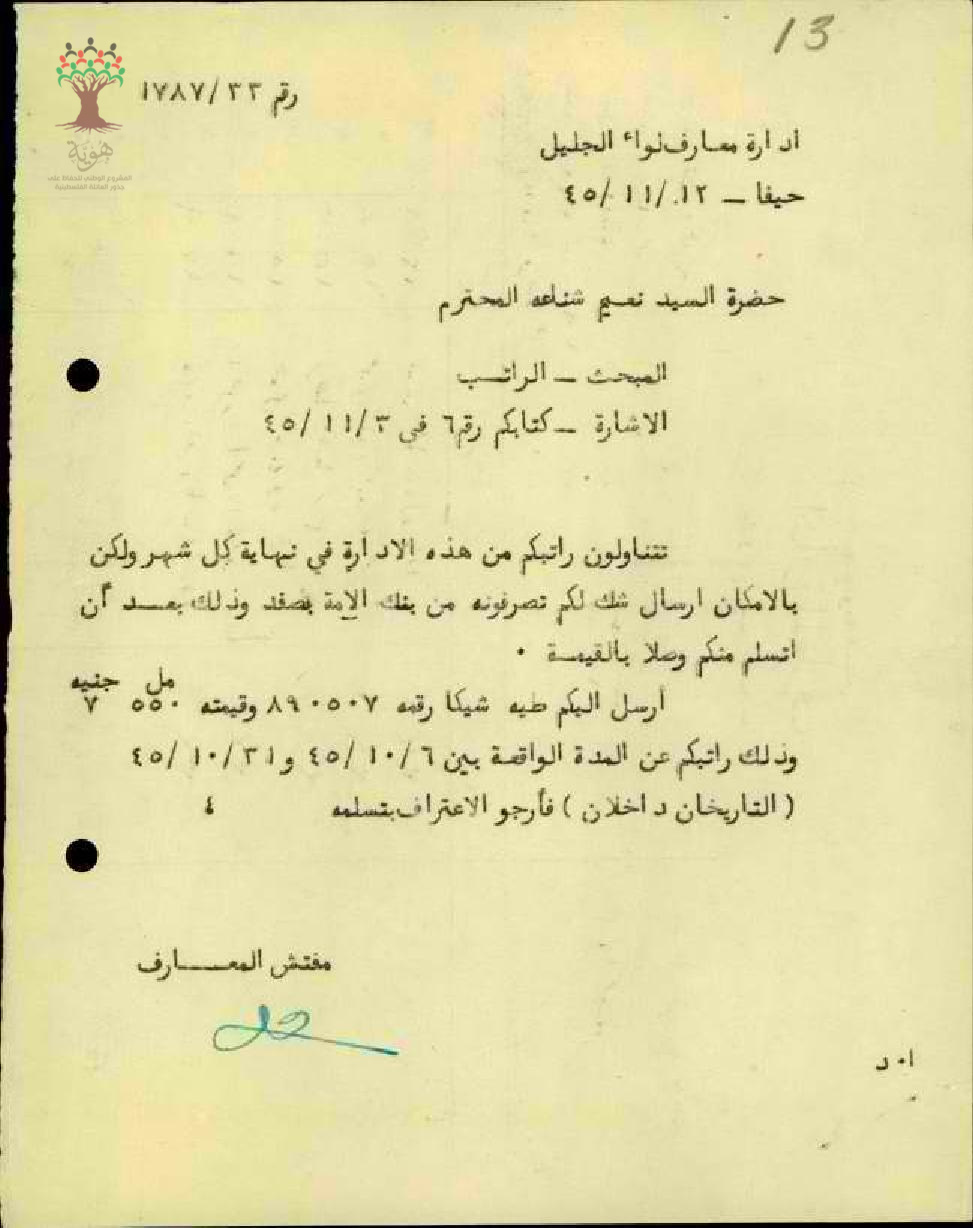 13
هُوِيَّة
المشروع الوطني للحفاظ على
جذور العائلة الفلسطينية
رقم ٣٣/ ١٧٨٧
ادارة معارف لواء الجليل
حيفا ــ ١٢/ ١١/ ٤٥
حضرة السيد نعيم شناعه المحترم
المبحث ــ الراتب
الاشارة ــ كتابكم رقم ٦ في ٣/ ١١/ ٤٥
تتناولون راتبكم من هذه الادارة في نهاية كل شهر ولكن
بالامكان ارسال شك لكم تصرفونه من بنك الامة بصفد وذلك بعد أن
اتسلم منكم وصلا بالقيمة ٠
مل جنيه
أرسل اليكم طيه شيكا رقمه ٨٩٠٥٠٧ وقيمته ٥٥٠ ٧
وذلك راتبكم عن المدة الواقعة بين ٦/ ١٠/ ٤٥ و ٣١/ ١٠/ ٤٥
( التاريخان داخلان ) فأرجو الاعتراف بتسلمه ٤
مفتش المعارف
ا٠ د